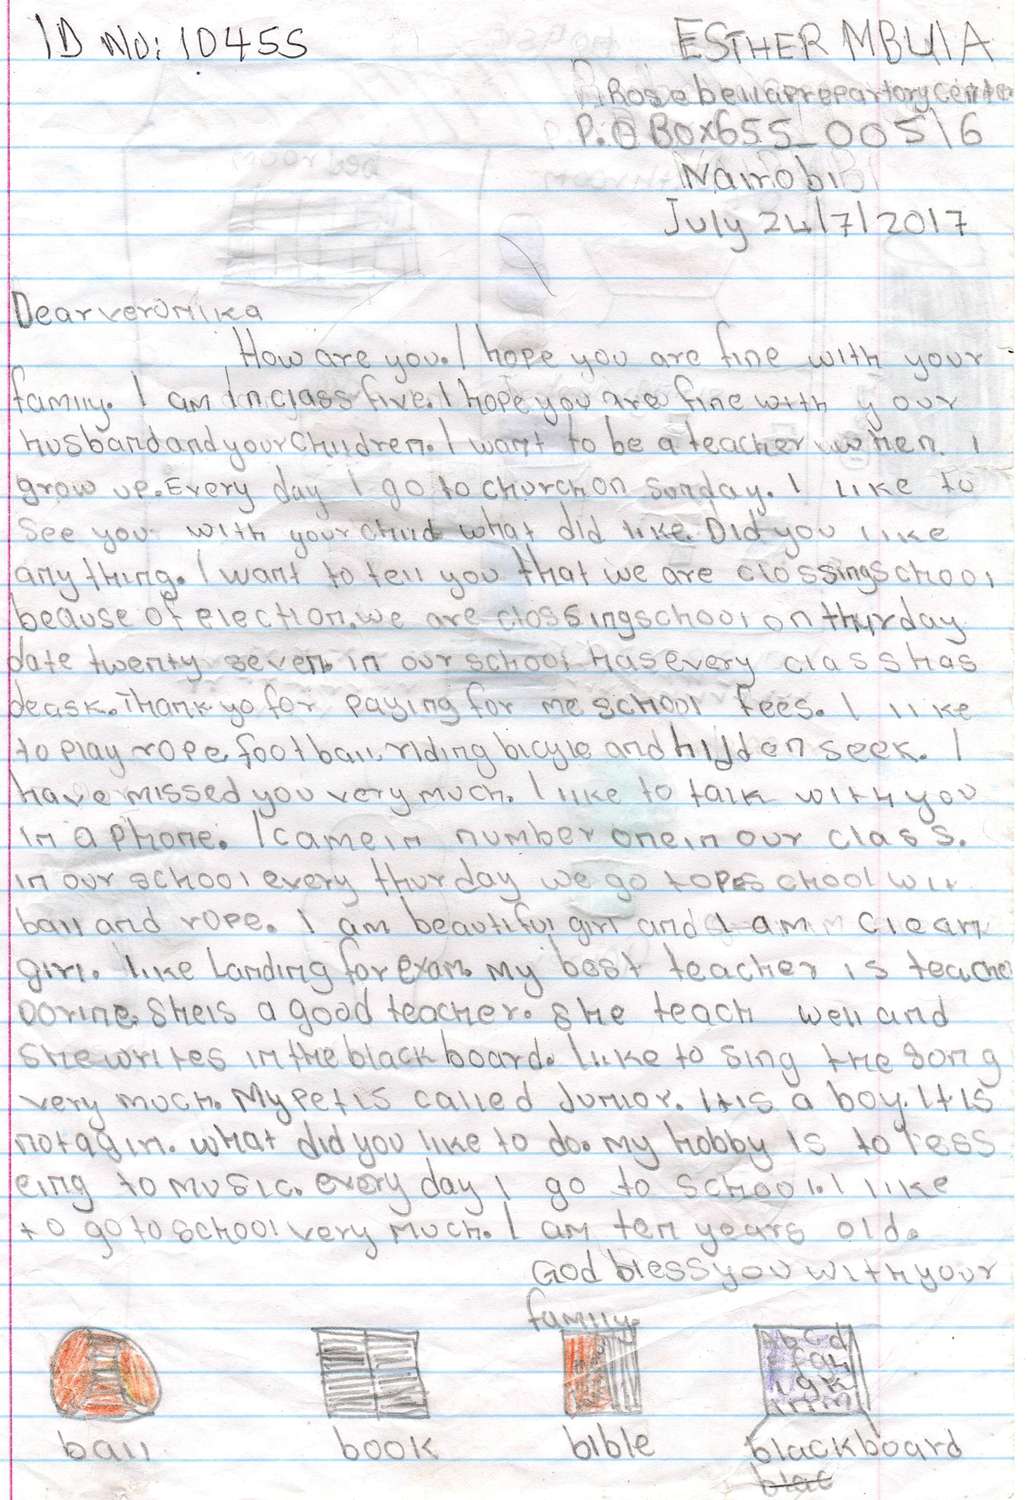 ID No: 10455
ESTHER MBUIA
Rosebellaprepartorycenter
P.O Box655_00516
Nairobi
July 24/7/2017
Dear veronika
How are you. I hope you are fine with your
family. I am In class five. I hope you are fine with your
husband and your Children. I want to be a teacher when I
grow up. Every day I go to church on sunday. I like to
See you with your child what did like. Did you like
any thing. I want to tell you that we are clossing school
beause of election. we are clossing school on thurday
date twenty seven. in our school has every class has
deask. Thank yo for paying for me school fees. I like
to play rope, foot ball, riding bicyle and hidden seek. I
have missed you very much. I like to talk with you
in a phone. I came in number one in our class.
in our school every thurday we go to pe school wit
ball and rope. I am beautiful girl and I am clean
girl. like Landing for exam. My best teacher is teache
Dorine. She is a good teacher. She teach well and
She writes in the black board. I like to sing the song
very much. My pet is called Junior. It is a boy. It is
not agin. What did you like to do. my hobby is to less
eing to music. every day I go to school. I like
to go to school very much. I am ten years old.
God bless you with your
family.
Abcd
ball
book
bible
blackboard
blac